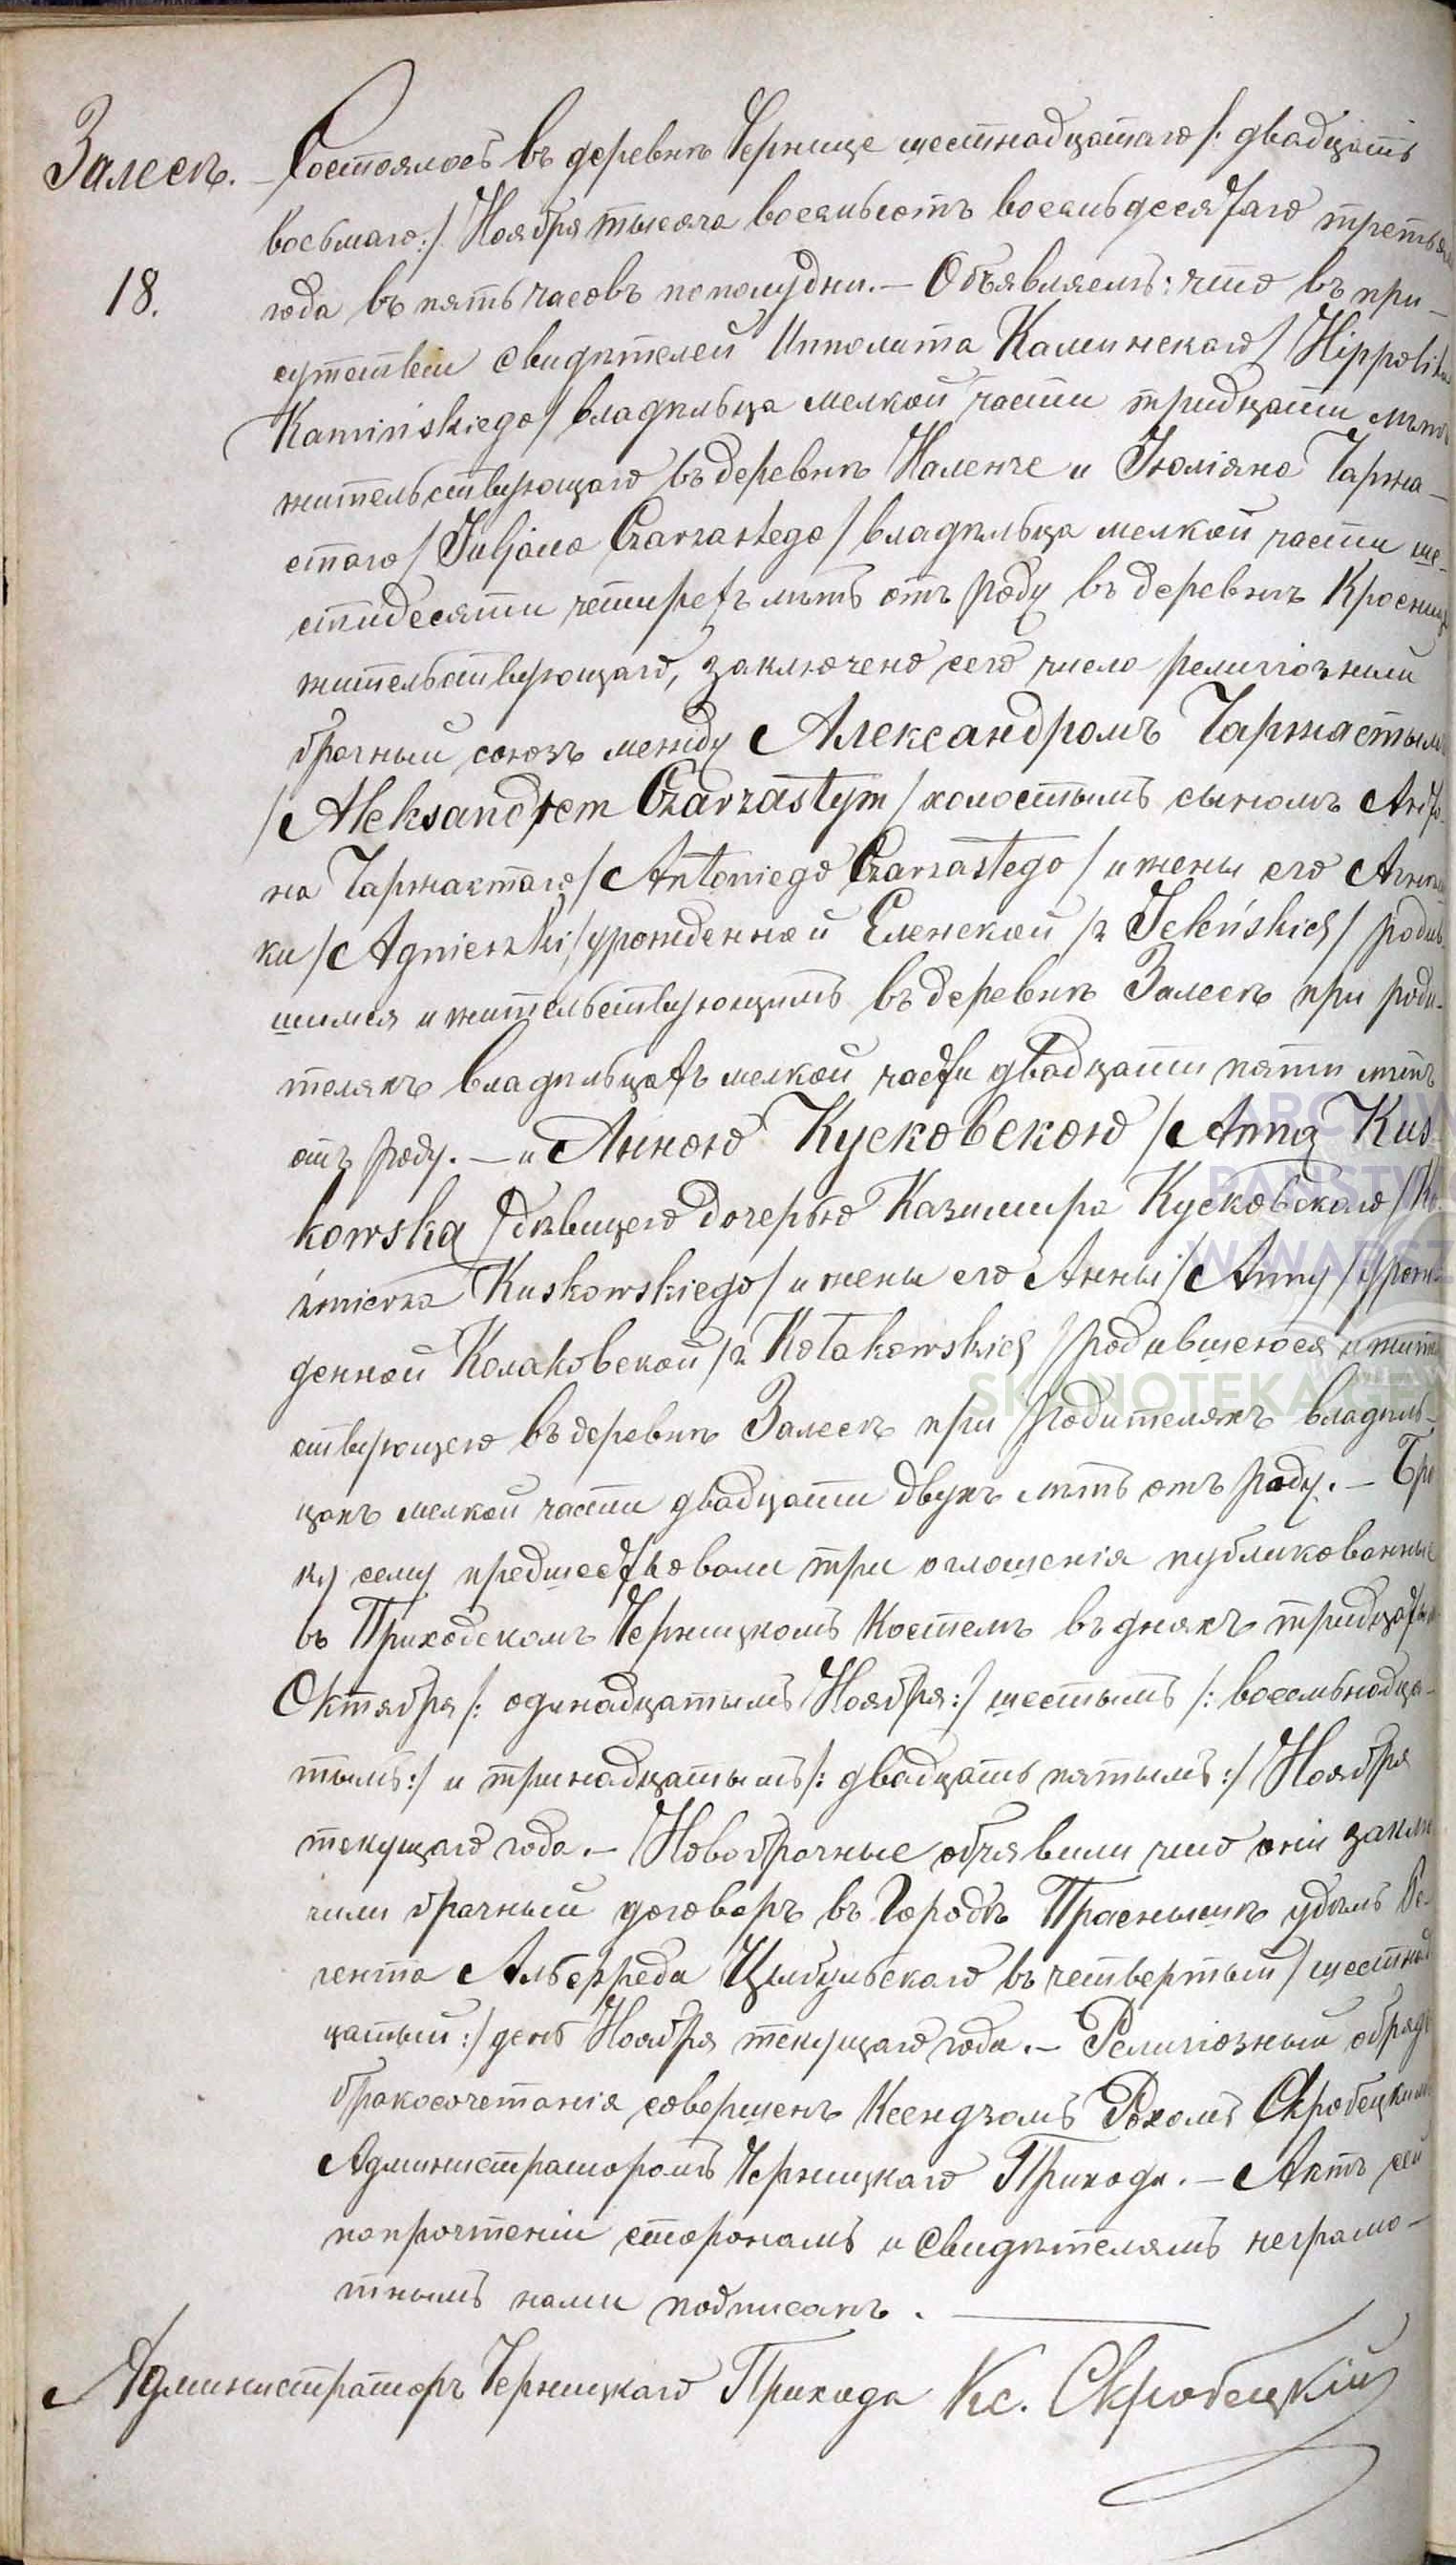 Залесѣ. — Состоялось въ деревнѣ Чернице шестнадцатаго /: двадцать
восьмаго :/ Ноября тысяча восемьсотъ восемьдесятаго третьяго
18. года въ пять часовъ пополудни. — Объявляемъ: что въ при-
сутствіи свидѣтелей Ипполита Каминскаго / Hippolita
Kamińskiego / владѣльца мелкой части тридцати лѣтъ
жительствующаго въ деревнѣ Наленче и Юліяна Чаржа-
стаго / Juljana Czarzastego / владѣльца мелкой части ше-
стидесяти четырехъ лѣтъ отъ роду въ деревнѣ Кросниц
жительствующаго, заключено сего числа религіозный
брачный союзъ между Александромъ Чаржастымъ
/ Aleksandrem Czarzastym / холостымъ сыномъ Анто-
на Чаржастаго / Antoniego Czarzastego / и жены его Агнѣш
ки / Agnieszki / урожденной Еленской / z Jeleńskich / родив-
шимся и жительствующимъ въ деревнѣ Залесѣ при роди-
теляхъ владѣльцахъ мелкой части двадцати пяти лѣтъ
отъ роду. — и Анною Кусковскою / Anną Kus-
kowską / дѣвицею дочерью Казимира Кусковского / Ka
źmierza Kuskowskiego / и жены его Анны / Anny / урож
денной Колаковской / z Kołakowskich / родившеюся и жител
ствующею въ деревнѣ Залесѣ при родителяхъ владѣль-
цахъ мелкой части двадцати двухъ лѣтъ отъ роду. — Бра
ку сему предшествовали три оглошенія публикованные
въ Приходскомъ Черницкомъ Костелѣ въ дняхъ тридцатымъ
Октября /: одинадцатымъ Ноября :/ шестымъ /: восемьнадца-
тымъ :/ и тринадцатымъ /: двадцать пятымъ :/ Ноября
текущаго года. — Новобрачные объявили что они заклю
чили брачный договоръ въ Городѣ Праснышѣ удѣлъ Ре-
гента Альфреда Цыбульскаго въ четвертый / шестнад
цатый :/ день Ноября текущаго года. — Религіозный обрядъ
бракосочетанія совершенъ Ксендзомъ Рохомъ Скробецкимъ
Администраторомъ Черницкаго Прихода. — Актъ сей
по прочтеніи сторонамъ и свидѣтелямъ неграмо-
тнымъ нами подписанъ.
Администраторъ Черницкаго Прихода Кс. Скробецкій
ARCHIW
PAŃSTW
W WARSZ
SKANOTEKA.GEN